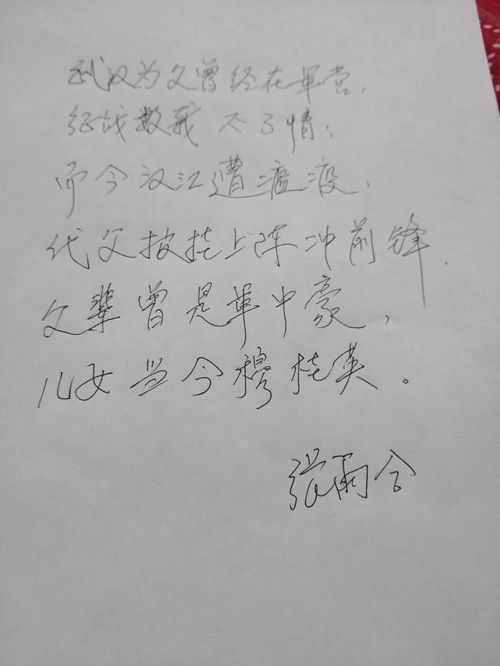 武汉为父曾经在军营,
征战数载不了情;
而今汉江遭瘟疫,
代父披挂上阵冲前锋.
父辈曾是军中豪,
儿女当今穆桂英。
张雨合